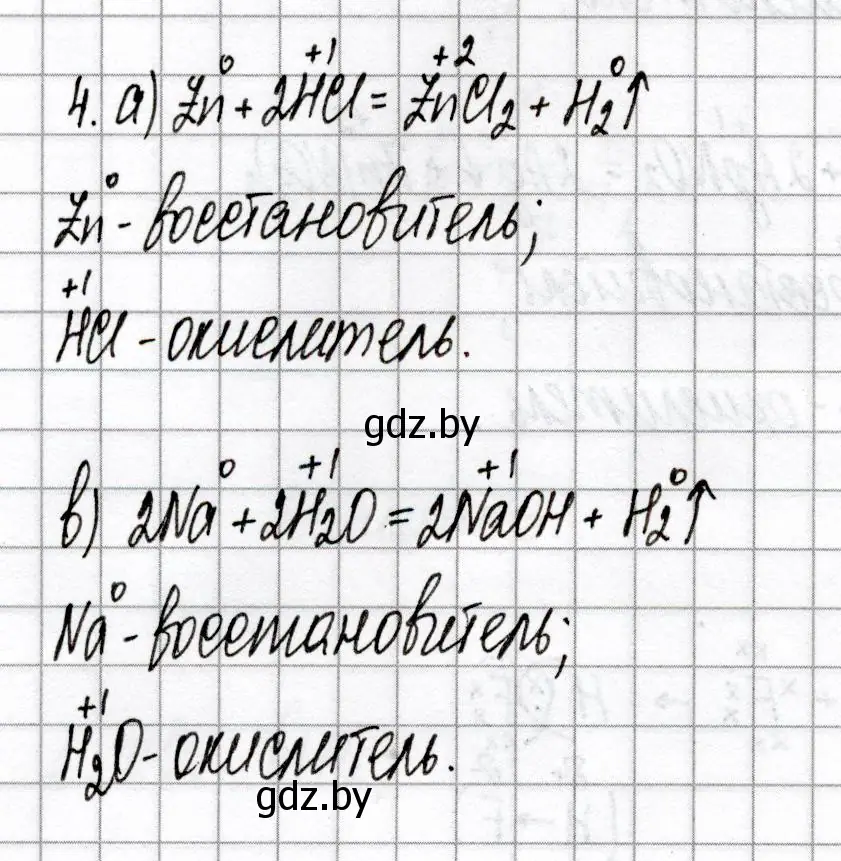 0 +1 +2 0
4. а) Zn + 2HCl = ZnCl₂ + H₂↑
0
Zn - восстановитель;
+1
HCl - окислитель.
gdz.by
0 +1 +1 0
в) 2Na + 2H₂O = 2NaOH + H₂↑
0
Na - восстановитель;
+1
H₂O - окислитель.
gdz.by